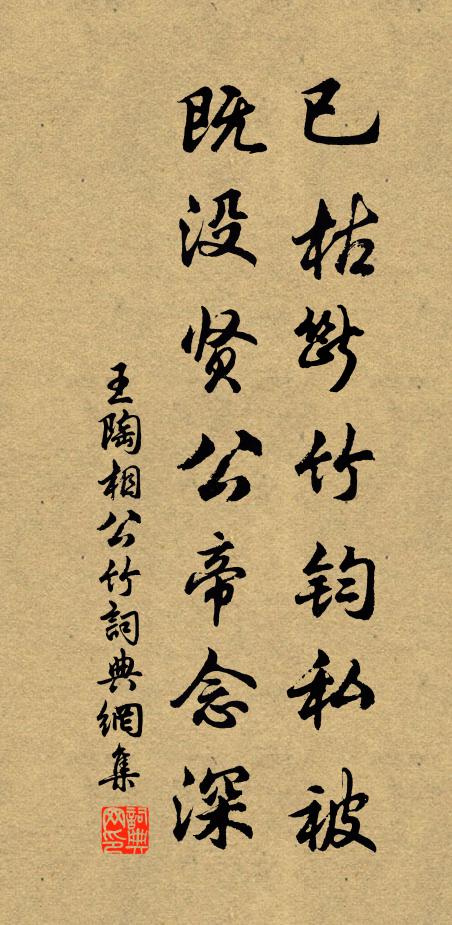 已枯断竹钧私被
既没贤公帝念深
王陶相公竹詞典網集
詞典网印